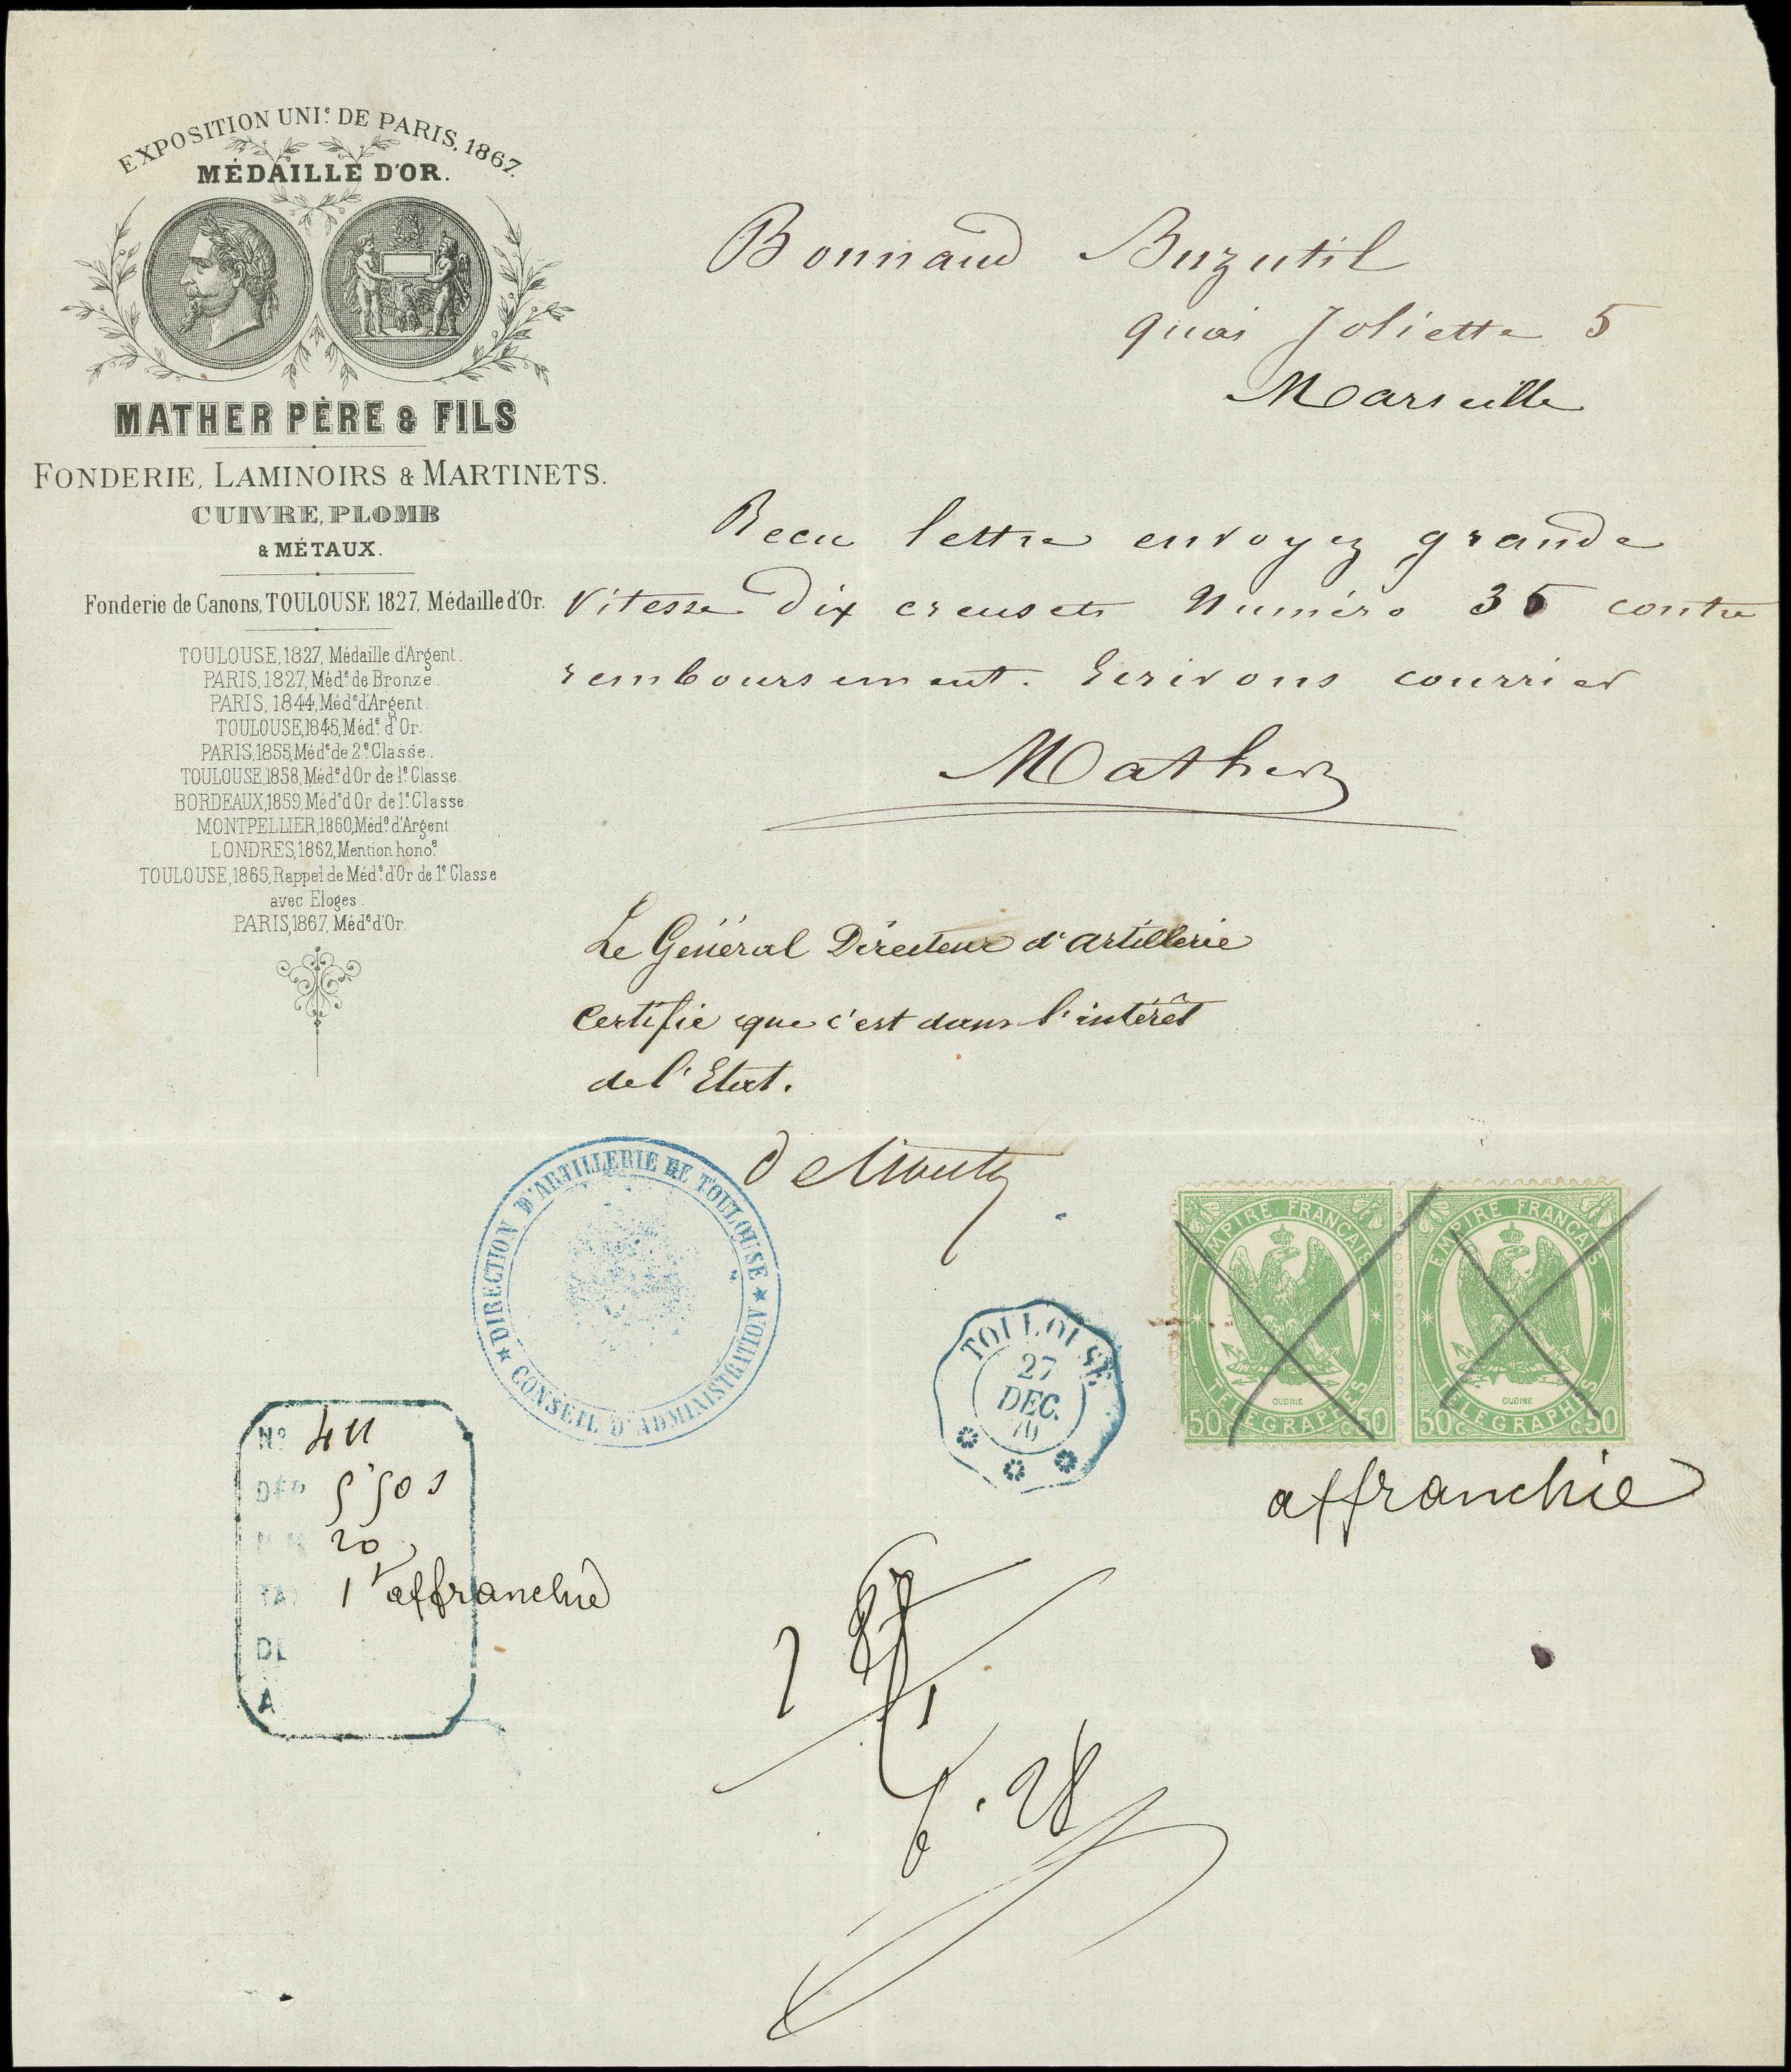 EXPOSITION UNI.e DE PARIS, 1867.
MÉDAILLE D'OR.
MATHER PÈRE & FILS
FONDERIE, LAMINOIRS & MARTINETS.
CUIVRE, PLOMB
& MÉTAUX.
Fonderie de Canons, TOULOUSE 1827, Médaille d'Or.
TOULOUSE, 1827, Médaille d'Argent.
PARIS, 1827, Méd.e de Bronze.
PARIS, 1844, Méd.e d'Argent.
TOULOUSE, 1845, Méd.e d'Or.
PARIS, 1855, Méd.e de 2.e Classe.
TOULOUSE, 1858, Méd.e d'Or de 1.e Classe.
BORDEAUX, 1859, Méd.e d'Or de 1.e Classe.
MONTPELLIER, 1860, Méd.e d'Argent
LONDRES, 1862, Mention hono.e
TOULOUSE, 1865, Rappel de Méd.e d'Or de 1.e Classe
avec Eloges.
PARIS, 1867, Méd.e d'Or.
Bonnaud Buzutil
quai Joliette 5
Marseille
Recu lettre envoyez grande
vitesse dix creusets Numéro 35 contre
remboursement. Ecrivons courrier
Mather
Le Général Directeur d'artillerie
Certifie que c'est dans l'intérêt
de l'Etat.
DIRECTION D'ARTILLERIE DE TOULOUSE
CONSEIL D'ADMINISTRATION
TOULOUSE
27
DEC.
70
EMPIRE FRANÇAIS
OUDINE
TÉLÉGRAPHES
50c c50
EMPIRE FRANÇAIS
OUDINE
TÉLÉGRAPHES
50c c50
affranchie
No 411
DÉP 5 50 s
20
TAX 1 affranchie
DE
A
6.28